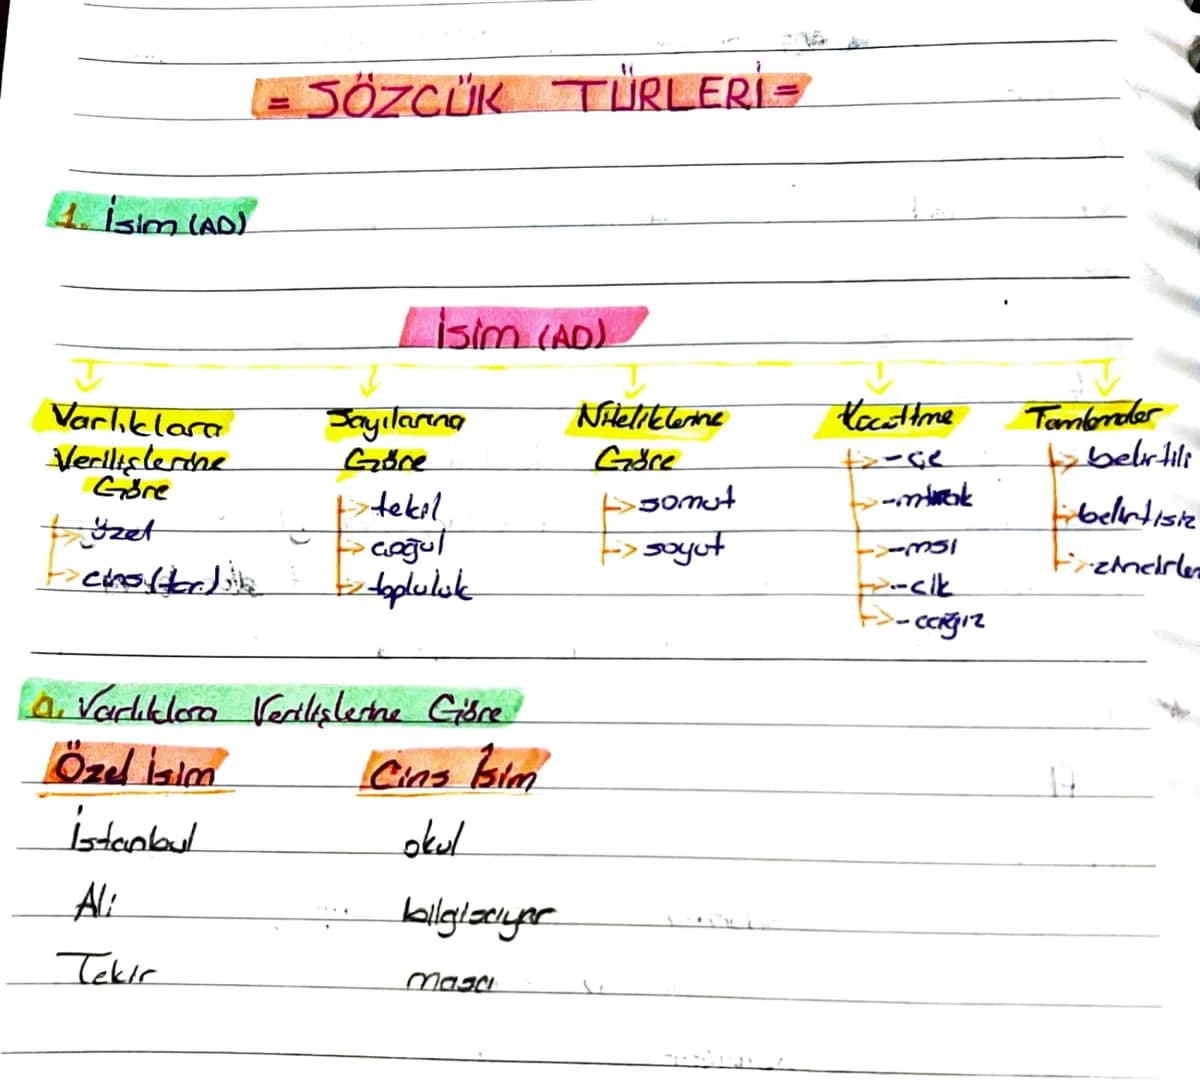 = SÖZCÜK TÜRLERİ =
1. İsim (AD)
İsim (AD)
Varlıklara
Verilişlerine
Göre
özel
cins (tür)
Sayılarına
Göre
tekil
çoğul
topluluk
Niteliklerine
Göre
somut
soyut
Küçültme
-çe
-mtrak
-msı
-cik
-cağız
Tamlamalar
belirtili
belirtisiz
zincirlem
a. Varlıklara Verilişlerine Göre
Özel İsim Cins İsim
İstanbul okul
Ali bilgisayar
Tekir masa